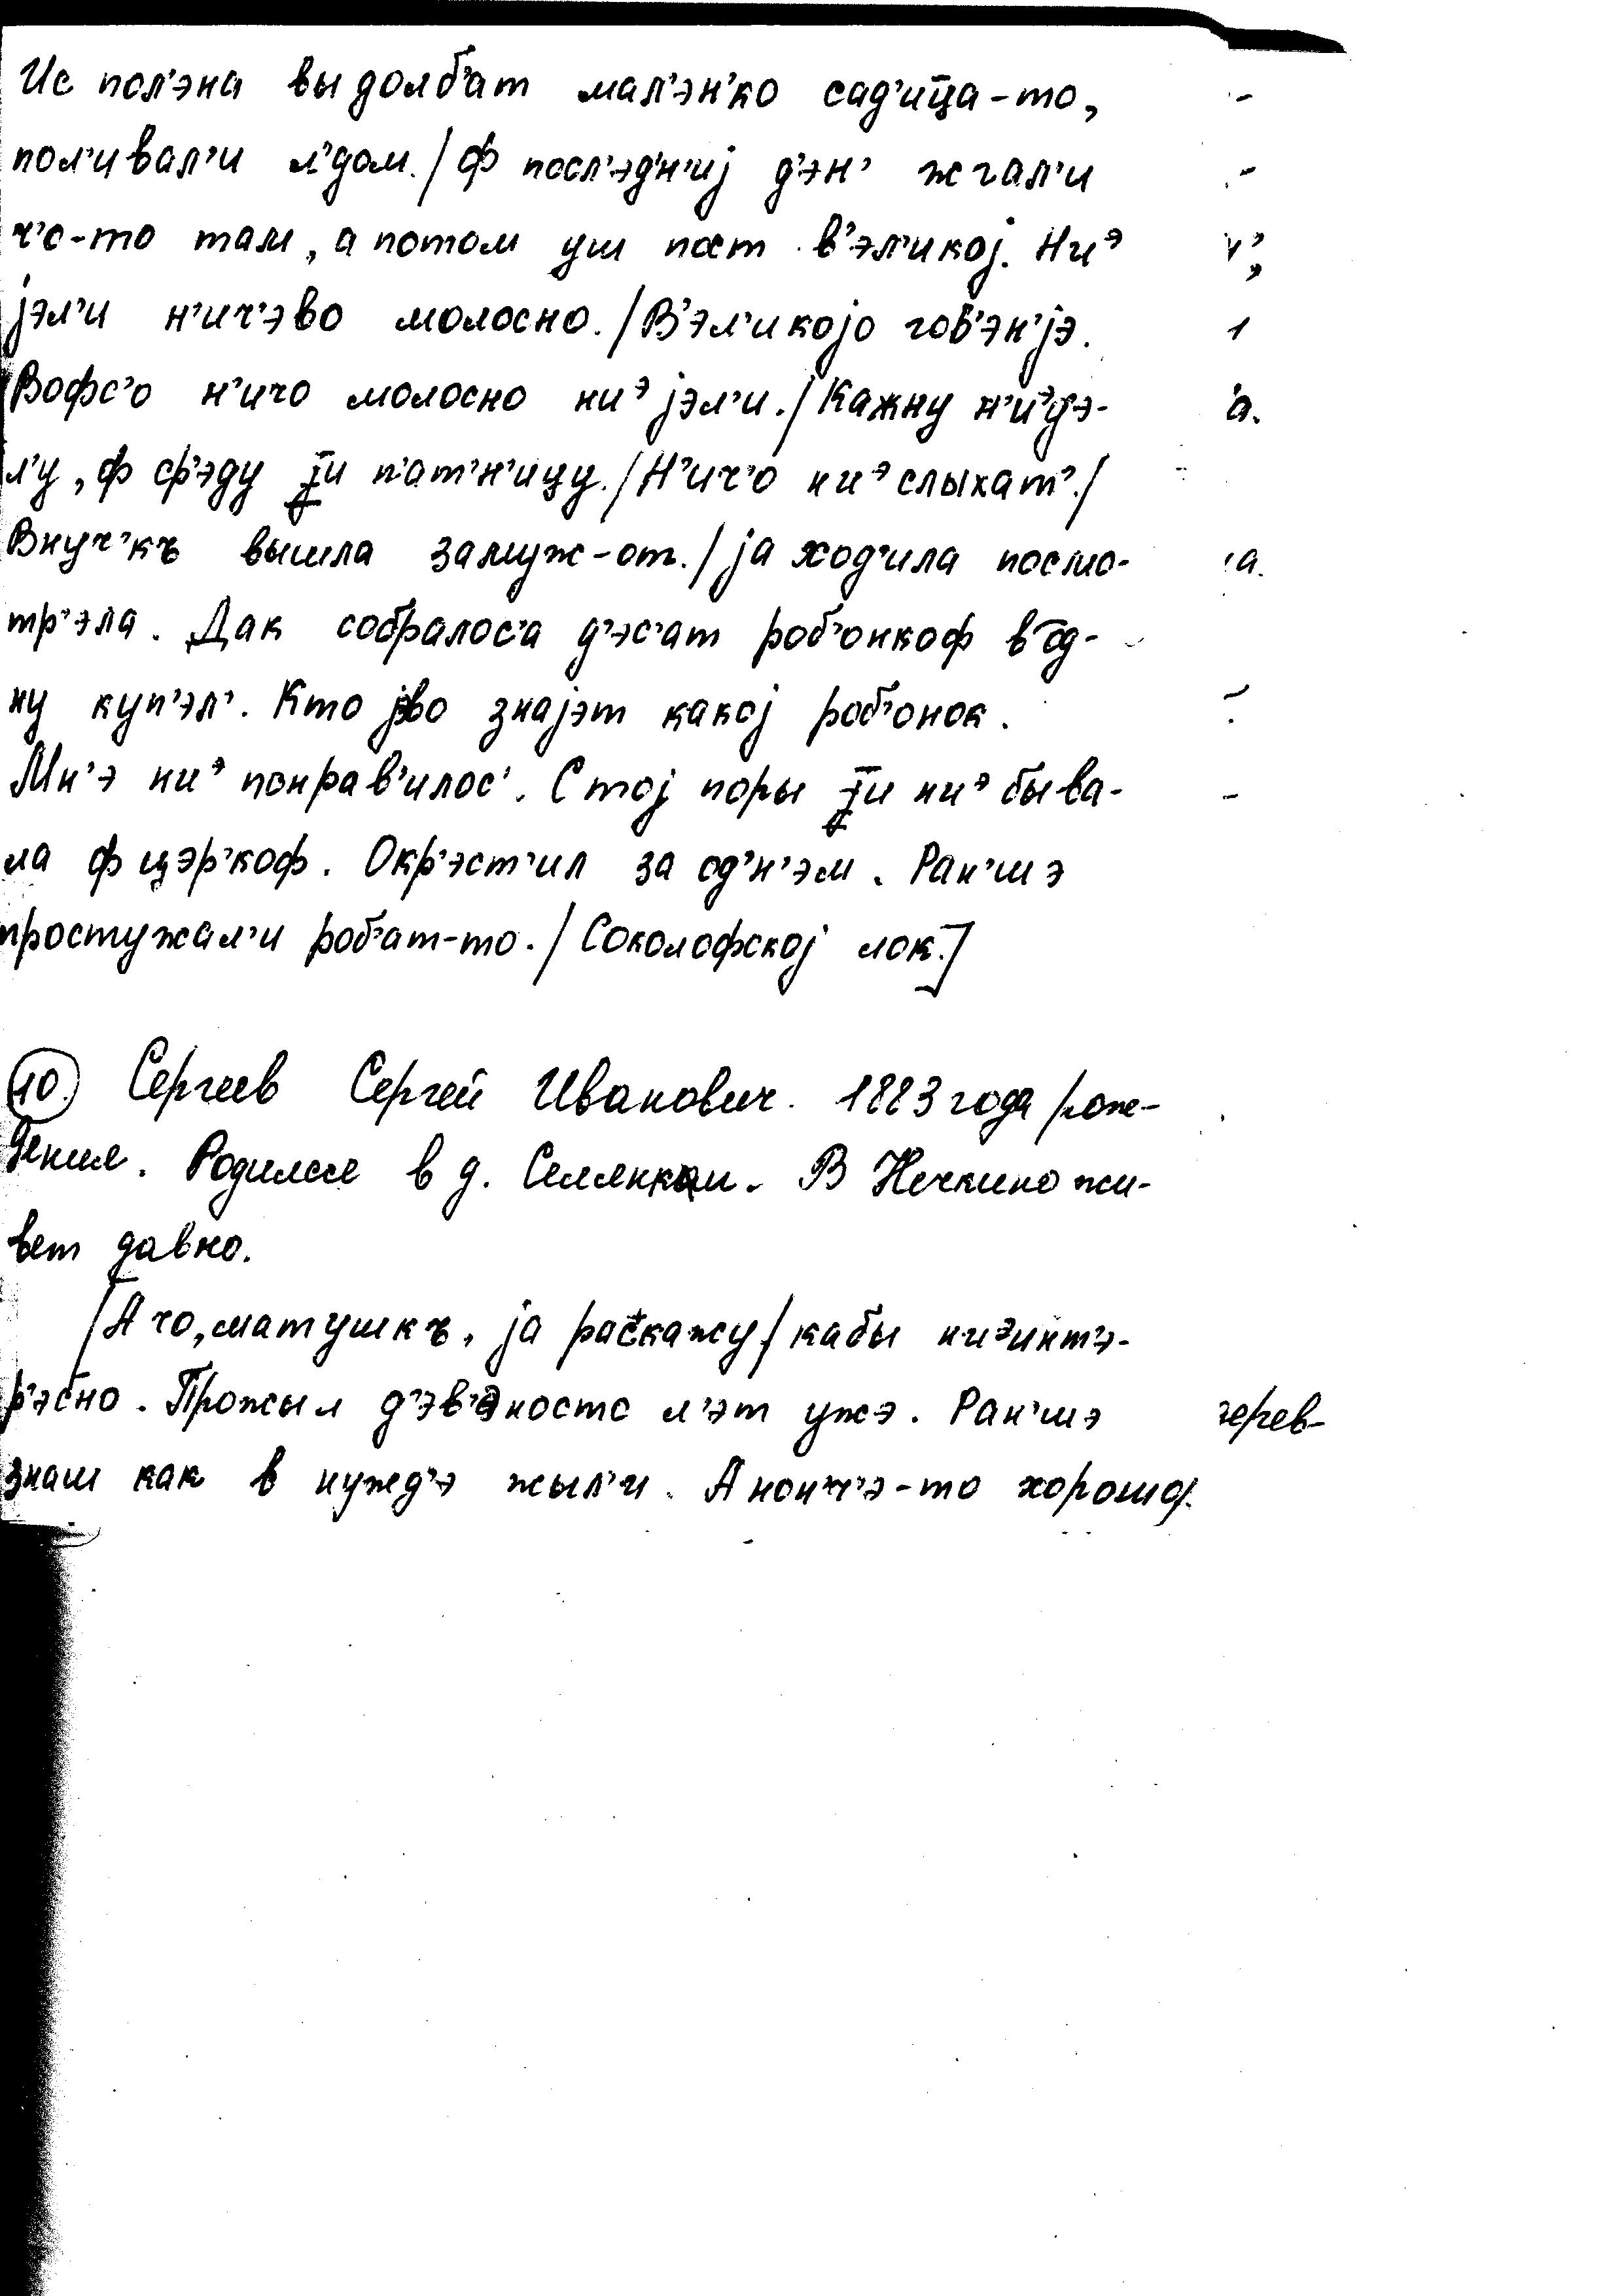 Ис пол'эна выдолб'ат мал'эн'ко сад'ица-то,
пол'ивал'и л'дом./Ф посл'эд'н'иj д'эн' жгал'и
ч'о-то там, а потом уш пост в'эл'икоj. Ниэ
jэл'и н'ич'эво молосно./В'эл'икоjо гов'эн'jэ.
Вофс'о н'ичо молосно ниэ jэл'и./Кажну н'иэд'э-
л'у, ф ср'эду и п'ат'н'ицу./Н'ич'о ниэ слыхат'./
Внуч'къ вышла замуж-от./jа ход'ила посмо-
тр'эла. Дак собралос'а д'эс'ат роб'онкоф в од-
ну куп'эл'. Кто jово знаjэт какоj роб'онок.
Мн'э ниэ понрав'илос'. С тоj поры и ниэ быва-
ла ф цэр'коф. Окр'эст'ил за од'н'эм. Ран'шэ
простужал'и роб'ат-то./Соколофскоj лок.]
10. Сергеев Сергей Иванович. 1883 года рож-
дения. Родился в д. Селянкаи. В Нечкино жи-
вет давно.
/А чо, матушкъ, jа раскажу/кабы ниэинт'э-
р'эсно. Прожыл д'эв'аносто л'эт ужэ. Ран'шэ
знаш как в нужд'э жыл'и. А нонч'э-то хорошо/.